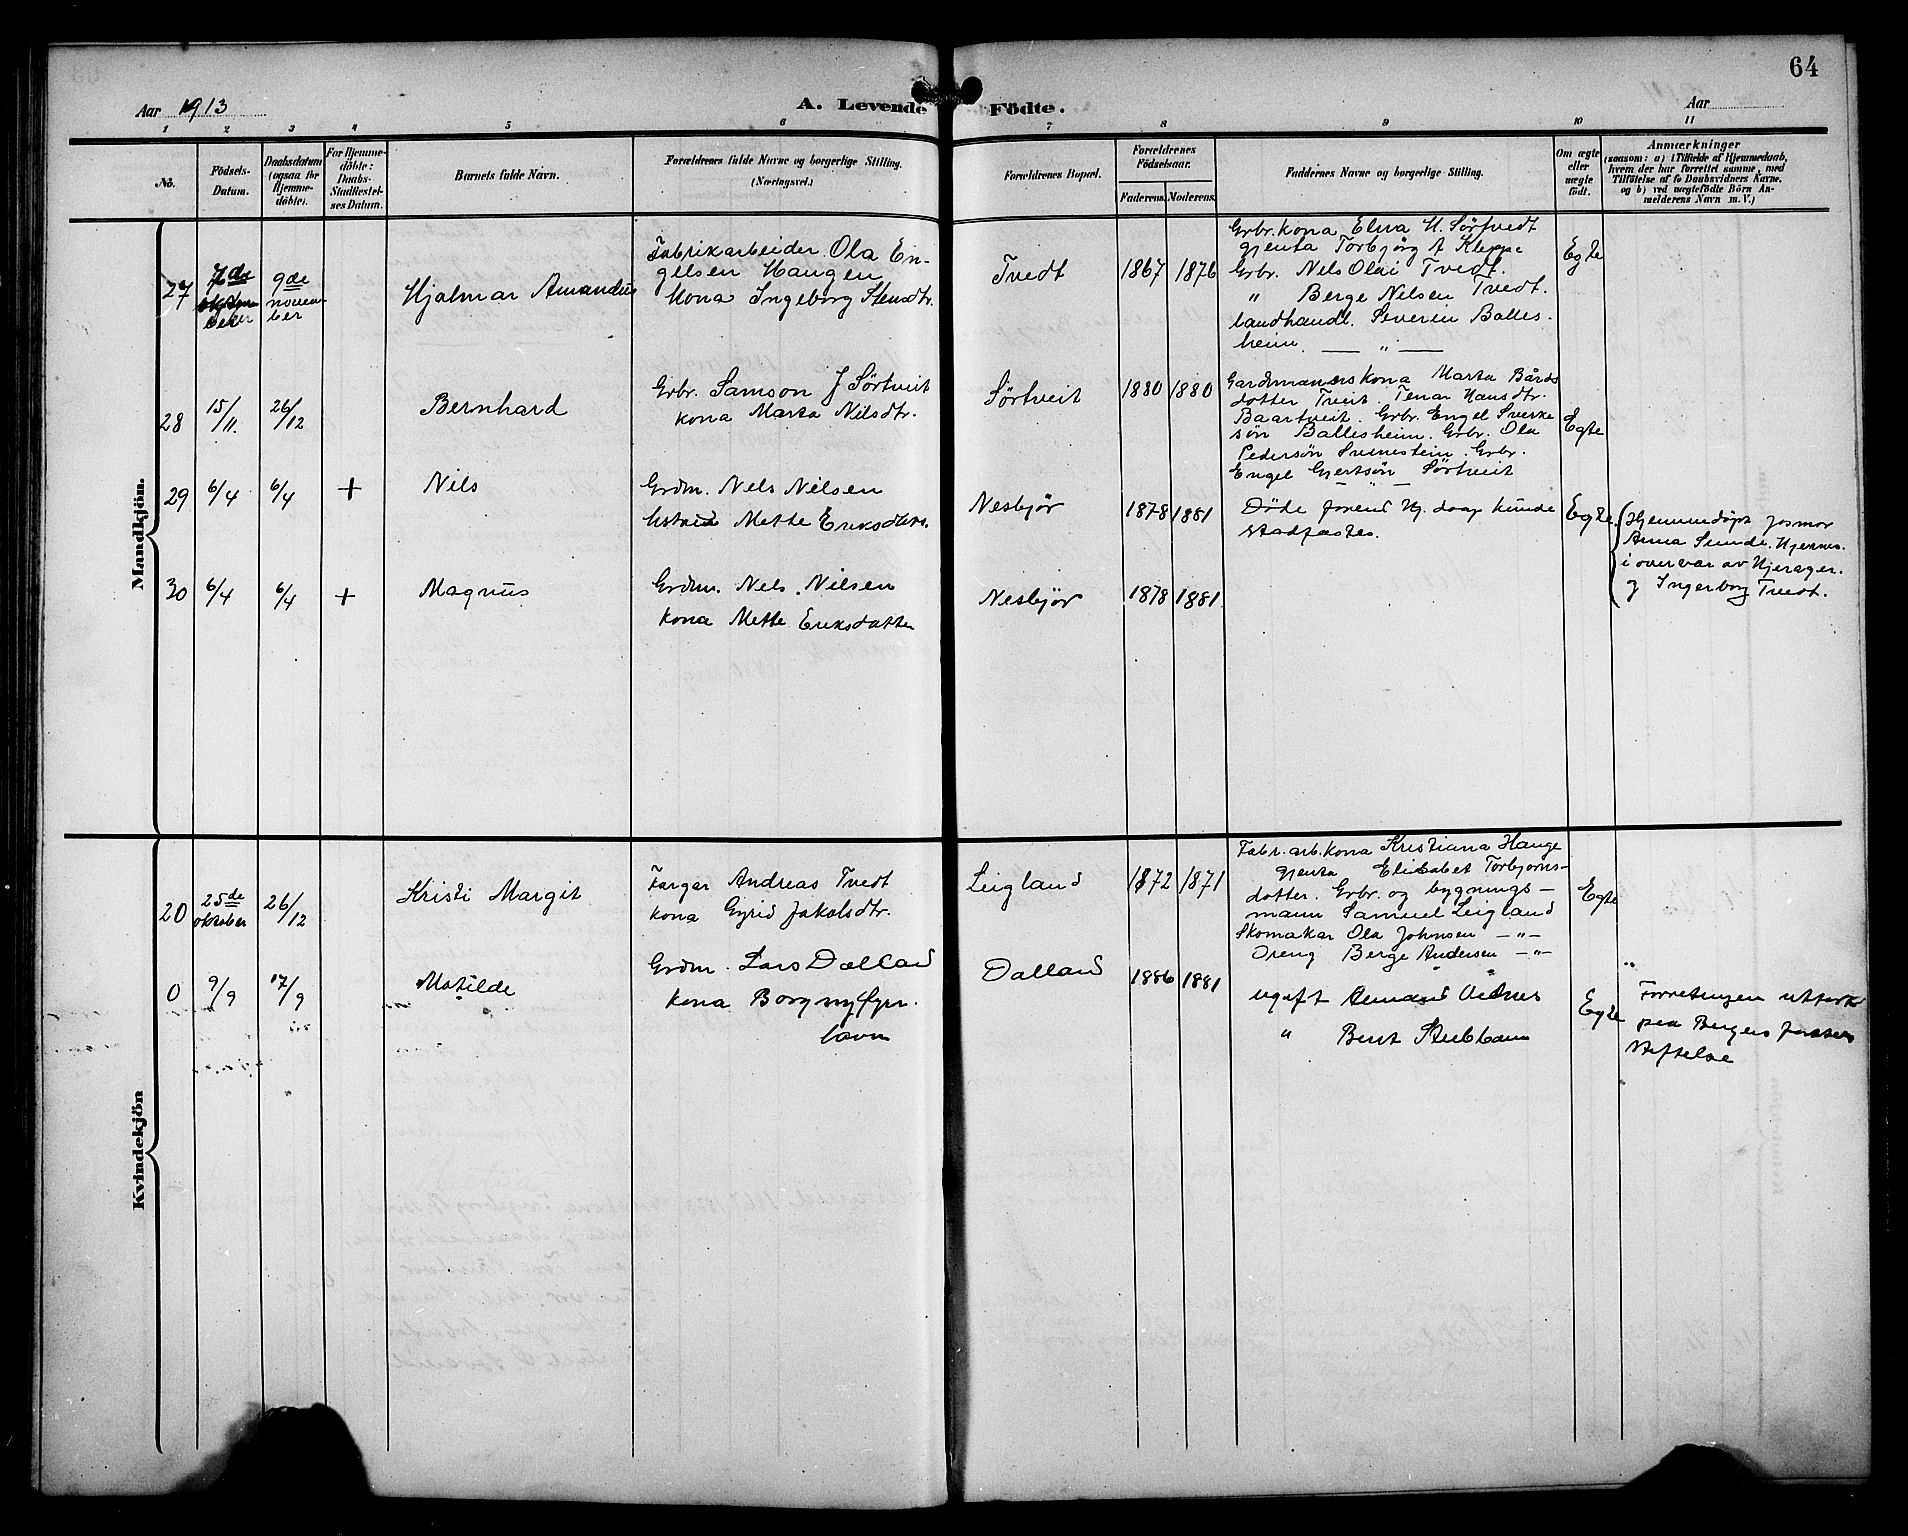 64
Aar 1913
A. Levende Födte.
Aar
1 2 3 4 5 6 7 8 9 10 11
No.
Födsels-
Datum.
Daabsdatum
(ogsaa for
Hjemme-
döbte).
For Hjemme-
döbte:
Daabs-
Stadfæstel-
ses Datum.
Barnets fulde Navn.
Forældrenes fulde Navne og borgerlige Stilling.
(Næringsvei.)
Forældrenes Bopæl.
Forældrenes
Födselsaar.
Faderens. Moderens.
Faddernes Navne og borgerlige Stilling.
Om ægte
eller
uægte
födt.
Anmærkninger
(saasom: a) i Tilfælde af Hjemmedaab,
hvem der har forrettet samme, med
Tilföielse af to Daabsvidners Navne,
og b) ved uægtefödte Börn An-
melderens Navn m. V.)
Mandkjön.
27
9de
novem-
ber
Hjalmar Amandus
Fabrikarbeider Ola En-
gelsen Haugen
Kona Ingeborg Stensdtr.
Tvedt
1867 1876
Grbr. kona Elna H. Sörtvedt
gjenta Torbjørg A Kleppe
Grbr. Nels Olai Tvedt.
" Berge Nelsen Tvedt.
landhandl. Severin Balles-
heim. — " —
Egte
28
15/11.
26/12
Bernhard
Grbr. Samson J Sørtveit
kona Marta Nilsdtr.
Sørtveit
1880 1880
Gardmannskona Marta Bårds
dotter Tveit. Tenar Hansdtr.
Baartveit. Grbr. Engel Sverke
søn Ballesheim. Grbr. Ola
Pedersøn Svinestein. Grbr.
Engel Gjertsøn Sørtveit
Egte
29
6/4
6/4
+
Nils
Grdm. Nels Nilsen
Hstru Mette Eriksdters.
Nesbjør
1878 1881
Døde forend Hj. daap kunde
stadfæstes.
Egte.
Hjemmedøpt Josmor
Anna Sunde. Hjernes.
i overvær av Hjerager.
og Ingerborg Tvedt.
30
6/4
6/4
+
Magnus
Grdm. Nels. Nilsen
kona Mette Eriksdatter
Nesbjør
1878 1881.
Kvindekjön
20
25de
oktober
26/12
Kristi Margit
Fargar Andreas Tvedt
kona Gyrid Jakobsdtr.
Leigland
1872 1871
Fabr. arb. kona Kristiana Hauge
gjenta Elisabet Torbjørns-
dotter. Grbr. og bygnings-
mann Samuel Leigland
Skomakar Ola Johnsen — " —
Dreng Berge Andersen — " —
Egte
"
0
9/9
17/9
Matilde
Grdm. Lars Dalland
kona Borgny
Dalland
1886 1881
ugift
" Bent
Egte
Forretningen
paa Bergens
stiftelse